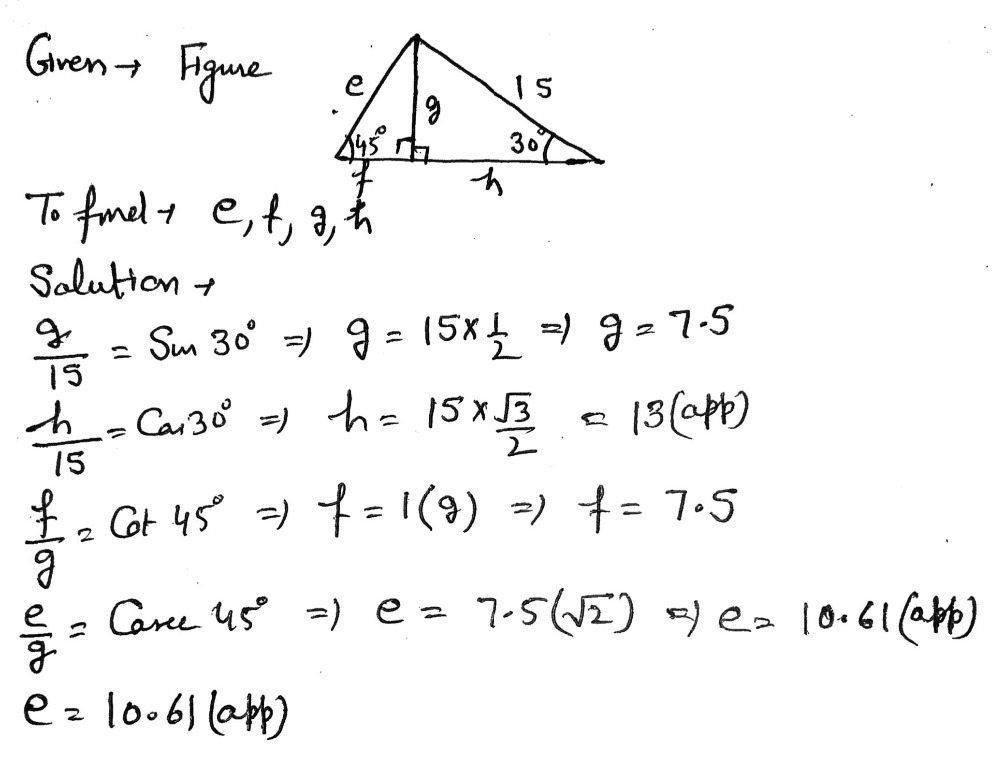 Given → Figure
e
g
15
45°
30°
f
h
To find → e, f, g, h
Solution →
g/15 = Sin 30° ⇒ g = 15 × 1/2 ⇒ g = 7.5
h/15 = Cos 30° ⇒ h = 15 × √3/2 = 13 (app)
f/g = Cot 45° ⇒ f = 1(g) ⇒ f = 7.5
e/g = Cosec 45° ⇒ e = 7.5(√2) ⇒ e = 10.61 (app)
e = 10.61 (app)